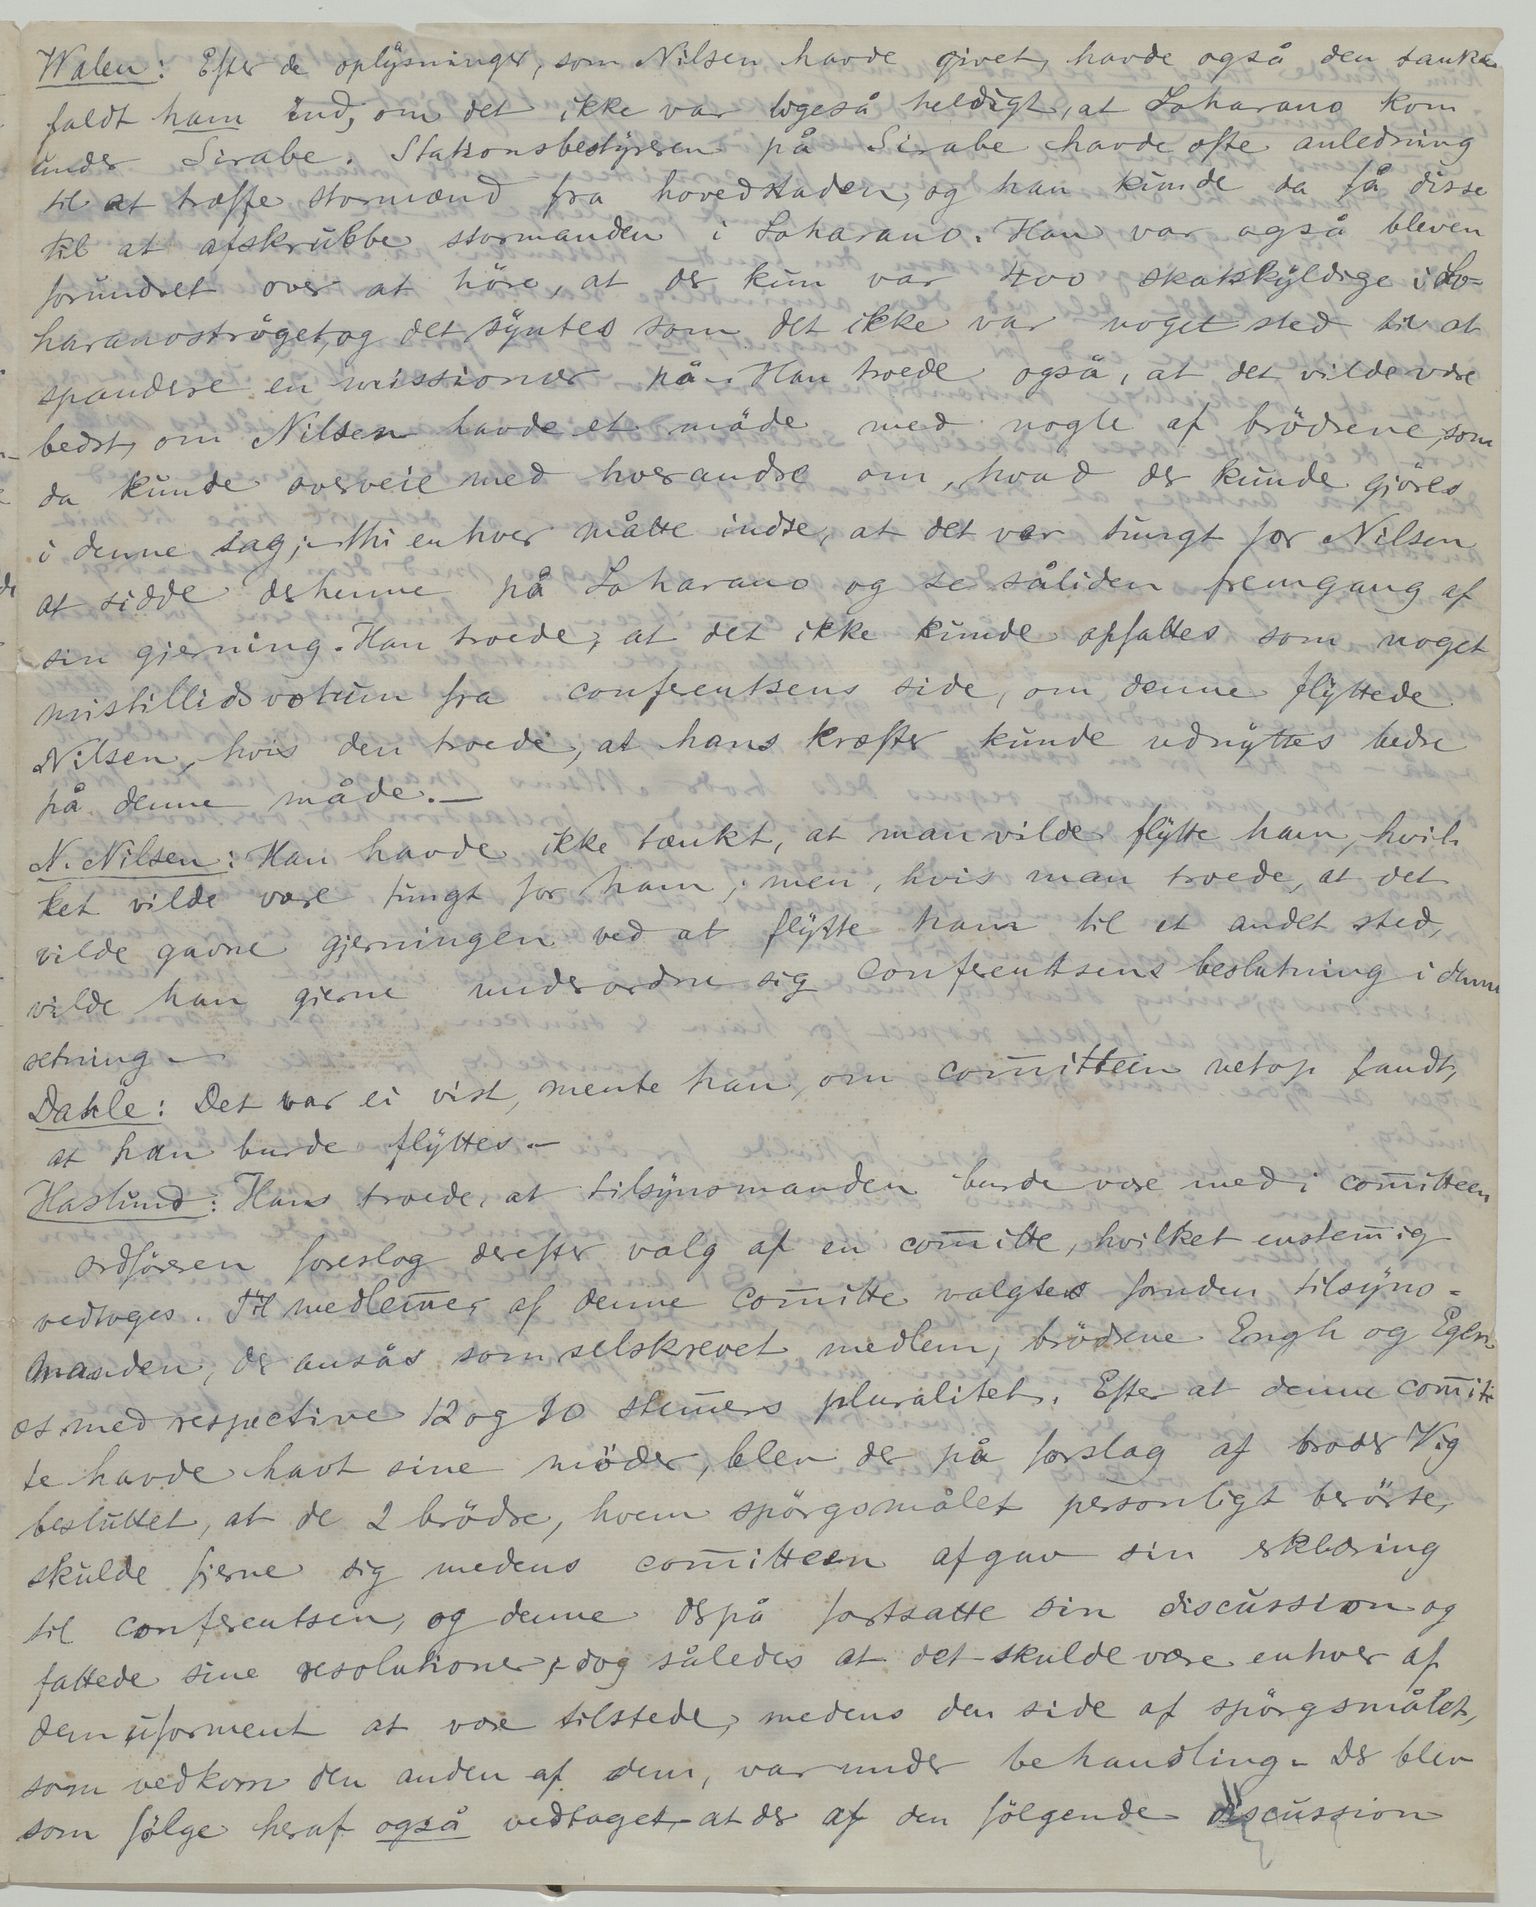 Walen: Efter de oplysninger, som Nilsen havde givet, havde også den tanke
faldt ham ind, om det ikke var ligeså heldigt, at Loharano kom
under Sirabe. Stationsbestyreren på Sirabe havde ofte anledning
til at træffe stormænd fra hovedstaden, og han kunde da få disse
til at afskrubbe stormanden i Loharano. Han var også bleven
forundret over at höre, at der kun var 400 skatskyldige i Lo-
haranoströget, og det syntes som det ikke var noget sted til at
spandere en missionær på. Han troede også, at det vilde være
bedst, om Nilsen havde et möde med nogle af brödrene, som
da kunde overveie med hverandre om, hvad der kunde gjöres
i denne sag; thi enhver måtte indse, at det var tungt for Nilsen
at sidde derhenne på Loharano og se såliden fremgang af
sin gjerning. Han troede, at det ikke kunde opfattes som noget
mistillidsvotum fra conferentsens side, om denne flyttede
Nilsen, hvis den troede, at hans kræfter kunde udnyttes bedre
på denne måde.—
N. Nilsen: Han havde ikke tænkt, at man vilde flytte ham, hvil-
ket vilde være tungt for ham; men, hvis man troede, at det
vilde gavne gjerningen ved at flytte ham til et andet sted,
vilde han gjerne underordne sig conferentsens beslutning i denne
retning.—
Dahle: Det var ei vist, mente han, om comitteen netop fandt,
at han burde flyttes.—
Haslund: Han troede, at tilsynsmanden burde være med i comitteen
Ordföreren foreslog derefter valg af en comitte, hvilket enstemig
vedtoges. Til medlemer af denne comitte valgtes foruden tilsyns-
manden, der ansås som selskrevet medlem, brödrene Engh og Egen-
æs med respective 12 og 10 stemers pluralitet. Efter at denne comit-
te havde havt sine möder, blev der på forslag af broder Vig
besluttet, at de 2 brödre, hvem spörgsmålet personligt berörte,
skulde fjerne sig medens comitteen afgav sin erklæring
til conferentsen, og denne derpå fortsatte sin discussion og
fattede sine resolutioner, dog således at det skulde være enhver af
dem uforment at være tilstede, medens den side af spörgsmålet,
som vedkom den anden af dem, var under behandling. Der blev
som fölge heraf også vedtaget, at der af den fölgende discussion